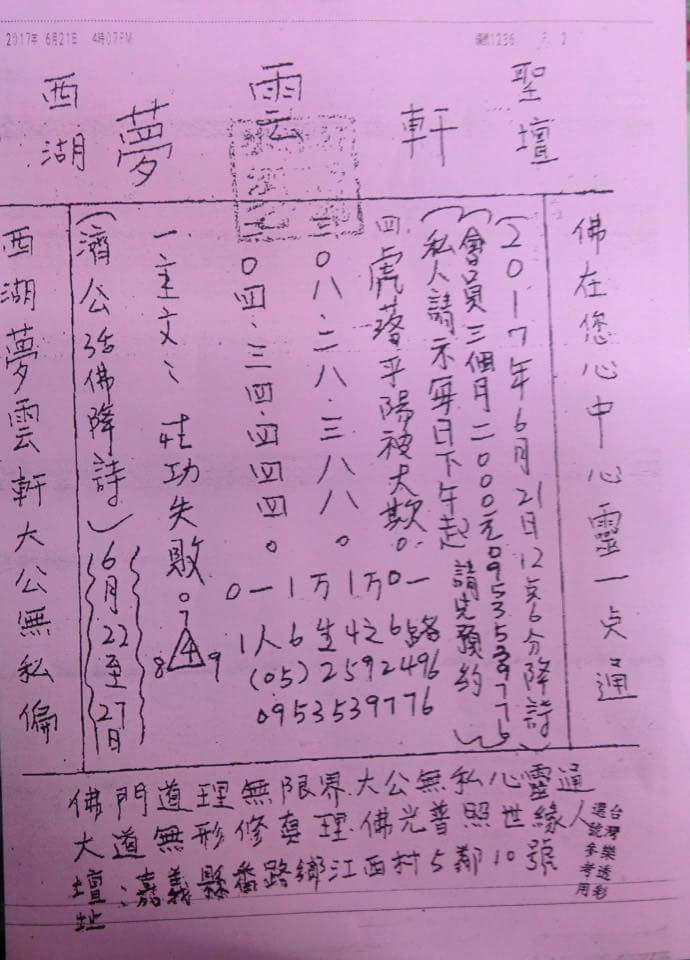 2017年 6月21日 4時07PM 編號1236 P. 2
西湖夢雲軒聖壇
佛在您心中心靈一点通
(2017年6月21日12点6分降詩)
(會員三個月二000元0953539776)
(私人請示每日下午起 請先預約)
四虎落平陽被犬欺。
三0八.二八.三八八。
二0四.三四.四四四。
一主文:、壯功失敗。
(濟公活佛降詩)(6月22至27日)
西湖夢雲軒大公無私偏
0一1万1万0一
1人6生4之6路
(05)2592496
0953539776
7
8 4 9
佛門道理無限界.大公無私心靈通
大道無形修真理.佛光普照世緣人
壇址:嘉義縣番路鄉江西村5鄰10號
台灣樂透彩
選號參考用